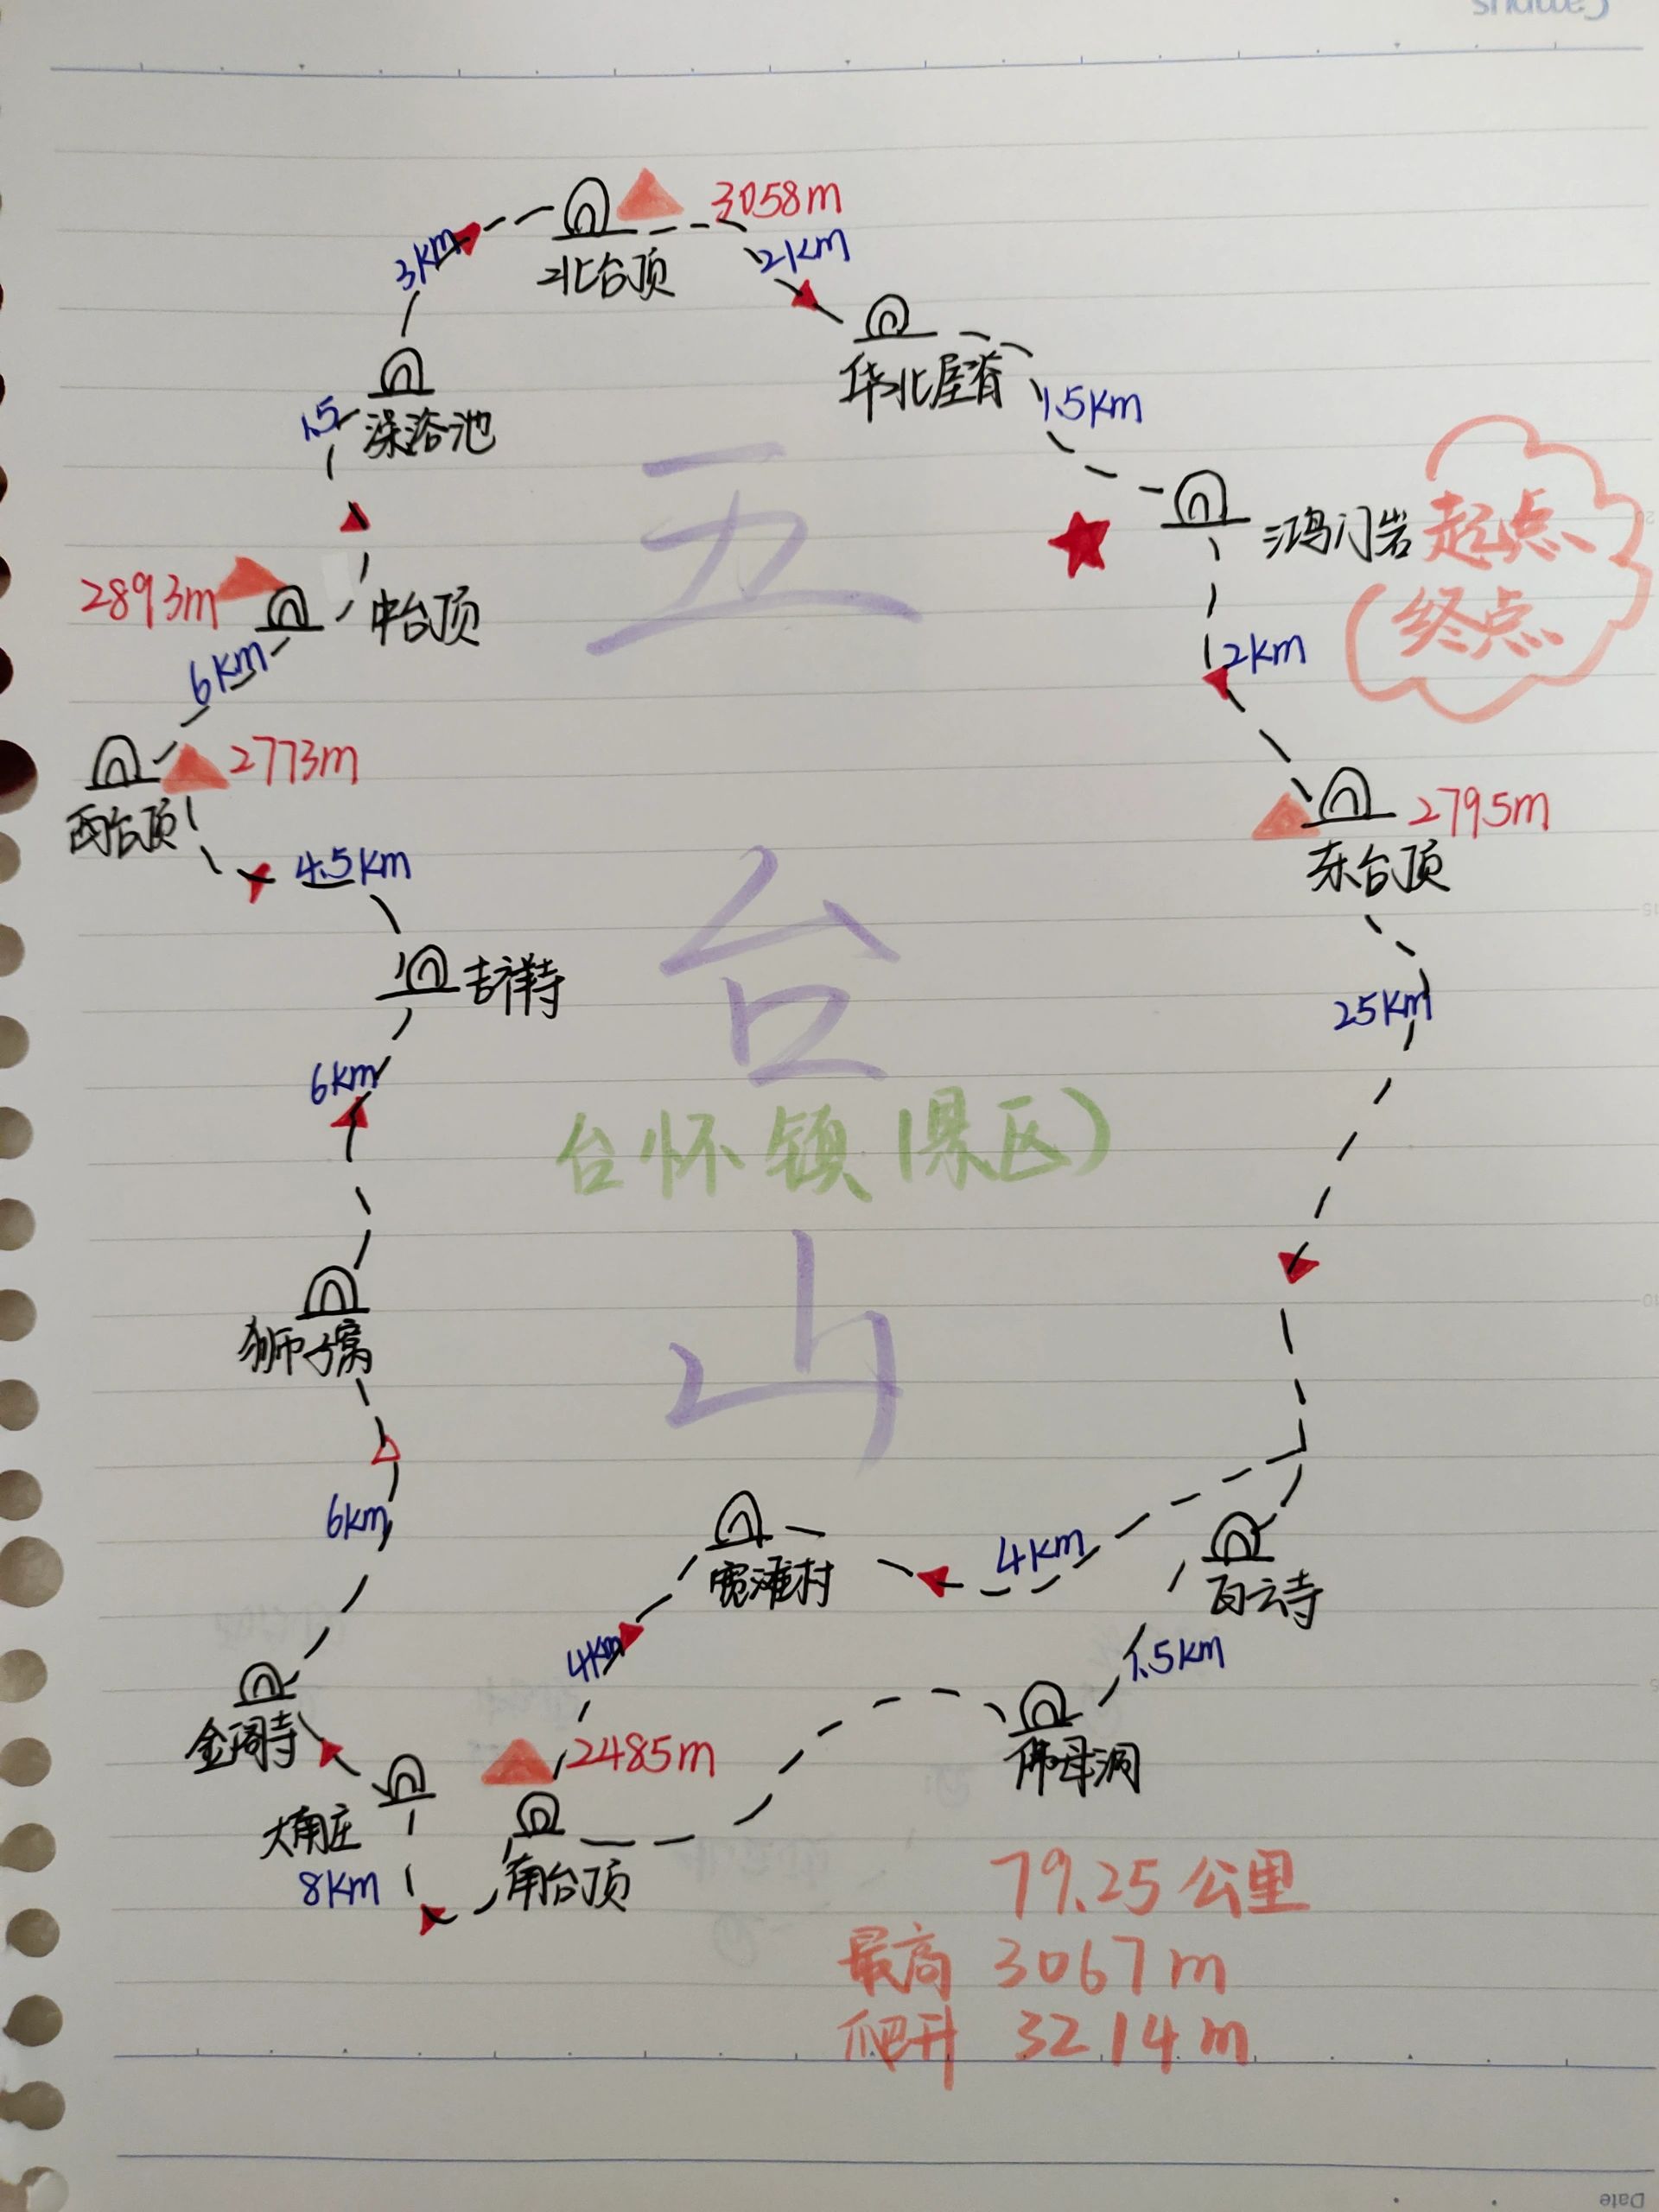 Campus
3058m
3km
2km
北台顶
华北屋脊
1.5km
澡浴池
1.5
五
鸿门岩
起点、
终点
2893m
中台顶
6km
2km
2773m
西台顶
2795m
东台顶
4.5km
台
吉祥寺
25km
6km
台怀镇(景区)
山
狮子窝
6km
4km
宽滩村
白云寺
4km
1.5km
金阁寺
2485m
佛母洞
大南庄
8km
南台顶
79.25公里
最高 3067m
爬升 3214m
Date